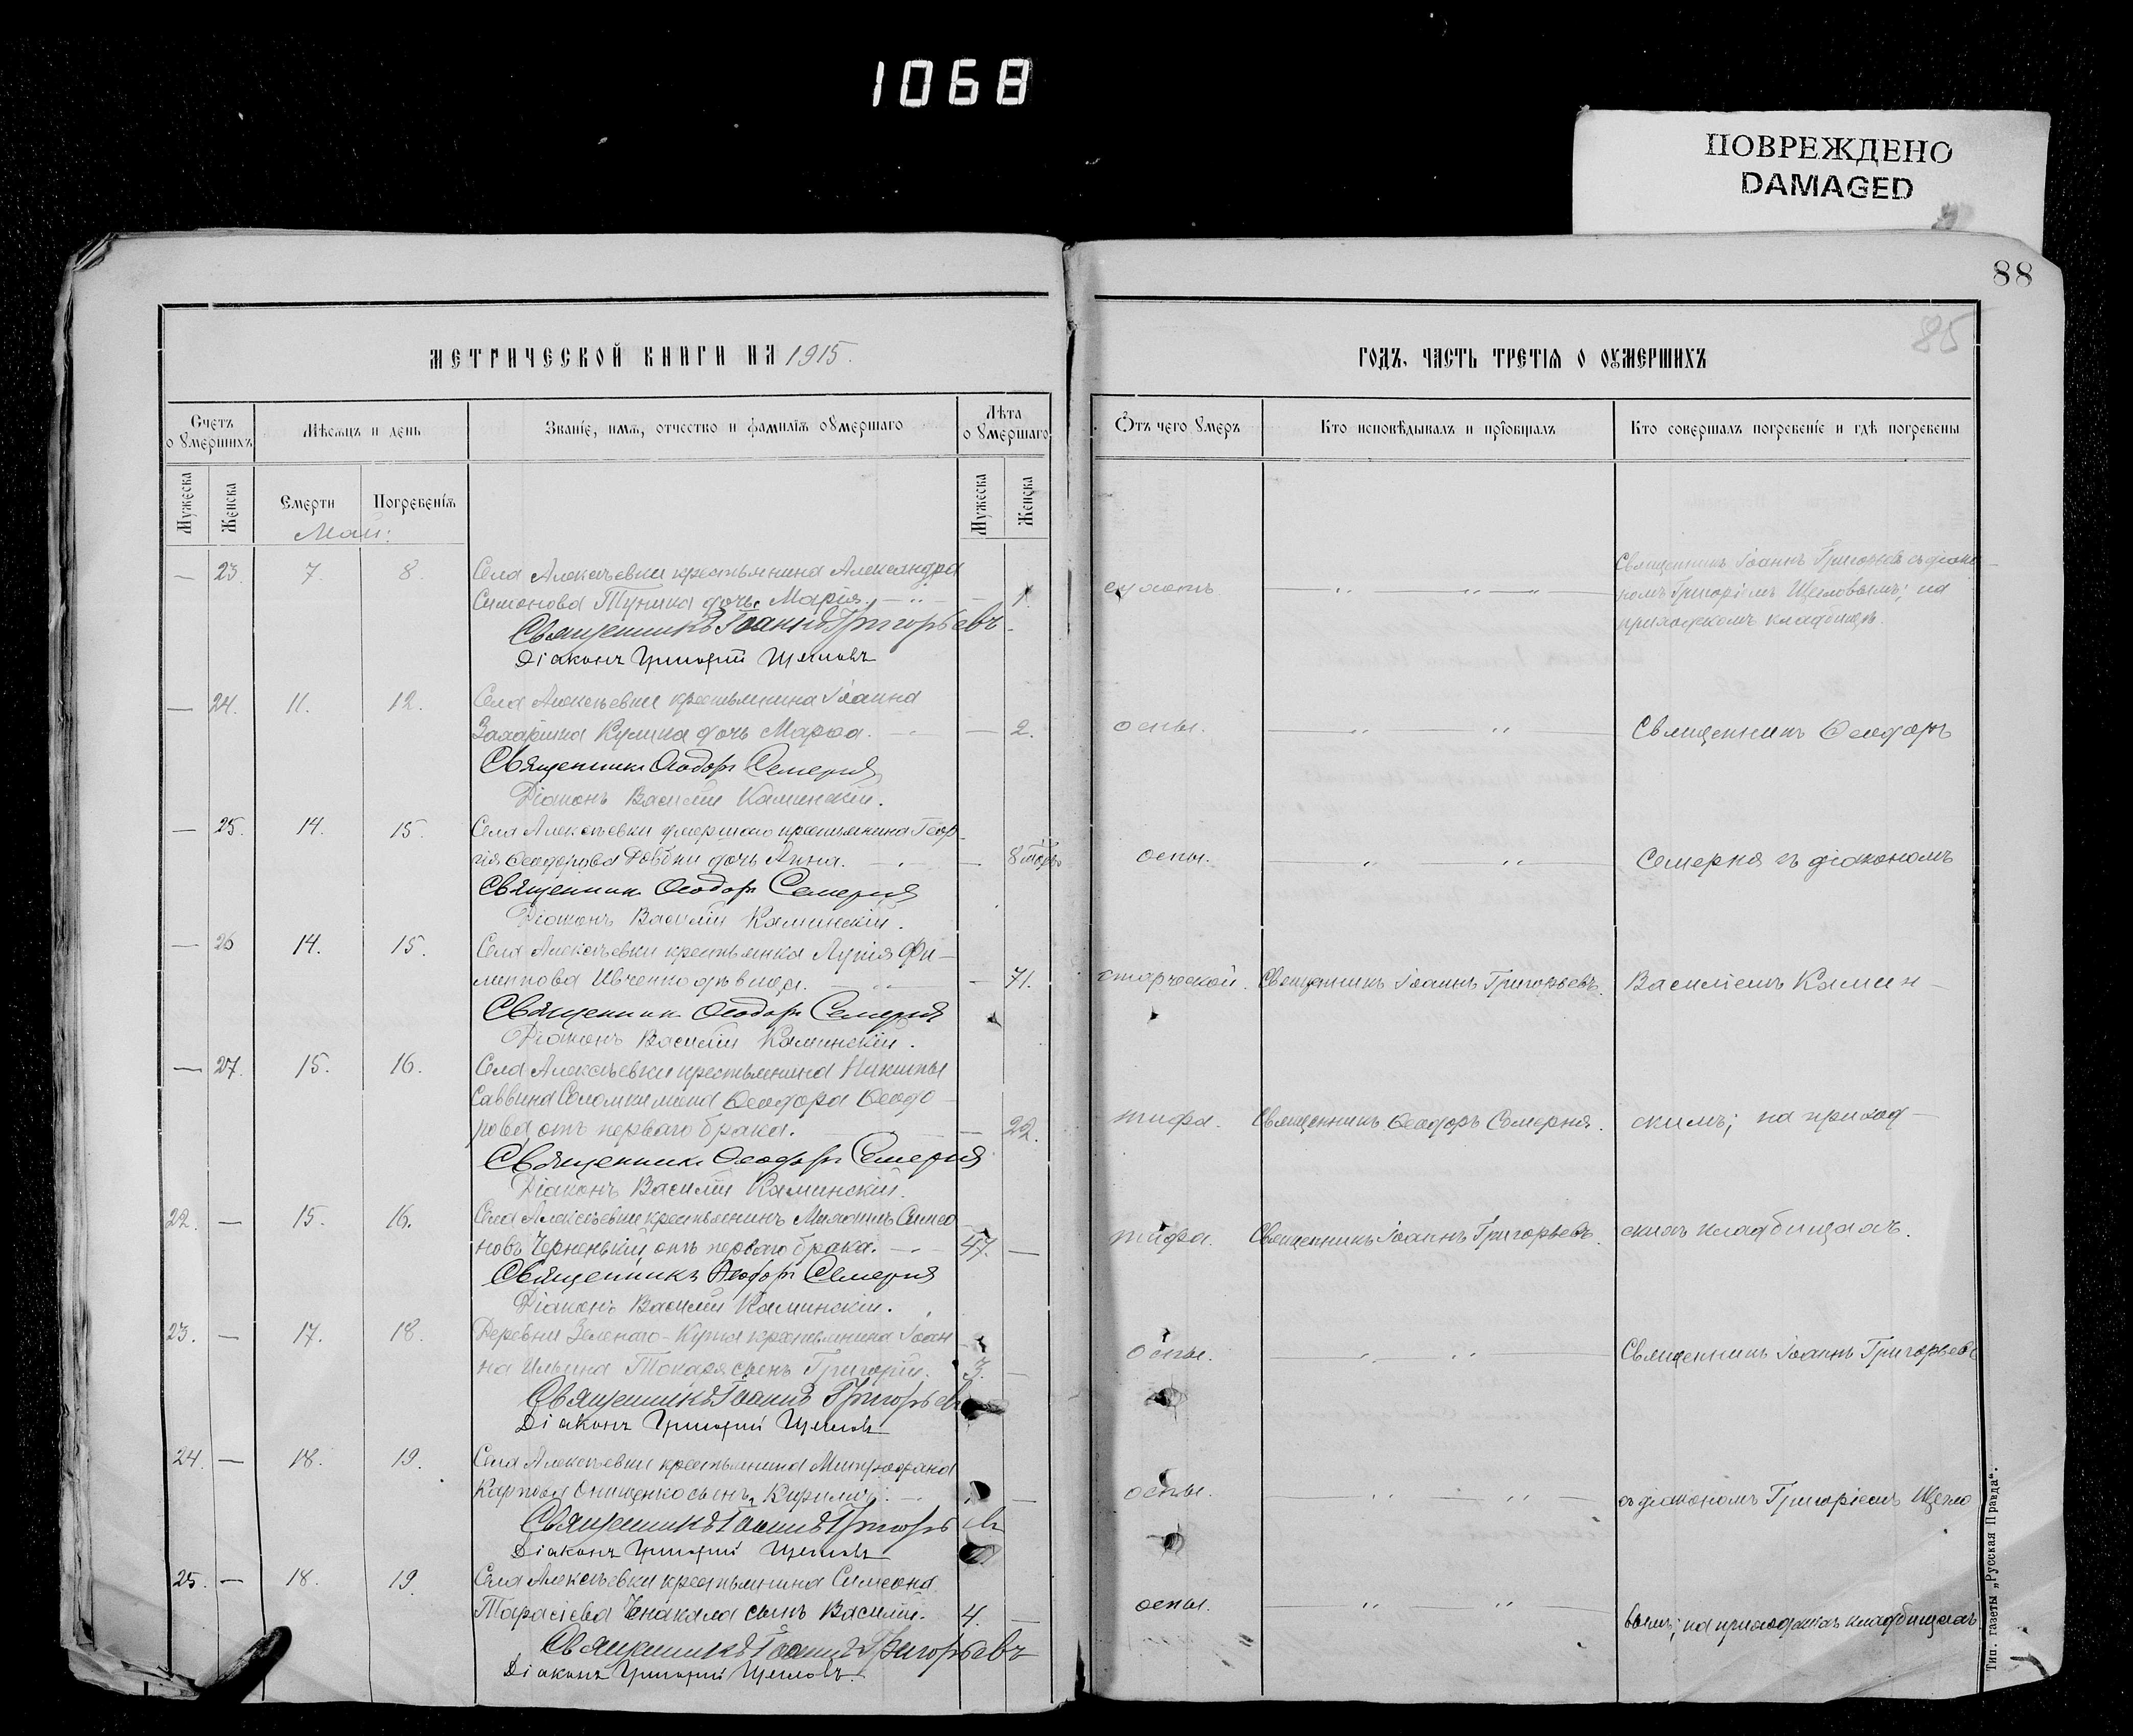 1068
ПОВРЕЖДЕНО
DAMAGED
88
85
МЕТРИЧЕСКОЙ КНИГИ НА 1915.
Счетъ о умершихъ
Мѣсяцъ и день
Званіе, имя, отчество и фамилія умершаго
Лѣта умершаго
Мужеска
Женска
Смерти
Погребенія
Мужеска
Женска
Май:
ГОДЪ, ЧАСТЬ ТРЕТІЯ О ОУМЕРШИХЪ
Отъ чего умеръ
Кто исповѣдывалъ и пріобщалъ
Кто совершалъ погребеніе и гдѣ погребены
— 23. 7. 8. Села Алексѣевки крестьянина Александра
Симонова дочь Марія. — 1.
Священникъ Іоаннъ Григорьевъ.
Діаконъ Григорій Щегловъ
Священникъ Іоаннъ Григорьевъ съ діако-
номъ Григоріемъ Щегловымъ; на
приходскомъ кладбищѣ.
— 24. 11. 12. Села Алексѣевки крестьянина Іоанна
Захаріина Кулика дочь Марѳа. — 2. оспы.
Священникъ Ѳеодоръ
Священникъ Ѳеодоръ Семерня
Діаконъ Василій Каминскій.
— 25. 14. 15. Села Алексѣевки умершаго крестьянина Геор-
гія Ѳеодорова дочь Анна. — 8 оспы.
Семерня съ діакономъ
Священникъ Ѳеодоръ Семерня
Діаконъ Василій Каминскій.
— 26 14. 15. Села Алексѣевки крестьянка Лукія Фи-
липпова Ивченко дѣвица. — 71. старческой. Священникъ Іоаннъ Григорьевъ. Василіемъ Камин-
Священникъ Ѳеодоръ Семерня
Діаконъ Василій Каминскій.
— 27. 15. 16. Села Алексѣевки крестьянина Никиты
Саввина Соломки жена Ѳеодора Ѳеодо-
рова, отъ перваго брака. — 22. тифа. Священникъ Ѳеодоръ Семерня. скимъ; на приход-
Священникъ Ѳеодоръ Семерня
Діаконъ Василій Каминскій.
22. — 15. 16. Села Алексѣевки крестьянинъ Симео-
новъ Черненькій отъ перваго брака. 47. — тифа. Священникъ Іоаннъ Григорьевъ. скихъ кладбищахъ.
Священникъ Ѳеодоръ Семерня
Діаконъ Василій Каминскій.
23. — 17. 18. Деревни Зеленаго-Кута крестьянина Іоан-
на Ильина Токаря сынъ Григорій. 3. — оспы.
Священникъ Іоаннъ Григорьевъ
Священникъ Іоаннъ Григорьевъ
Діаконъ Григорій Щегловъ
24. — 18. 19. Села Алексѣевки крестьянина Митрофана
Карпова Онищенко сынъ Кириллъ. — оспы.
съ діакономъ Григоріемъ Щегло
Священникъ Іоаннъ Григорьевъ
Діаконъ Григорій Щегловъ
25. — 18. 19. Села Алексѣевки крестьянина Симеона
Тарасіева сынъ Василій. 4. — оспы.
вымъ; на приходскихъ кладбищахъ
Священникъ Іоаннъ Григорьевъ
Діаконъ Григорій Щегловъ.
Тип. газеты „Русская Правда“.